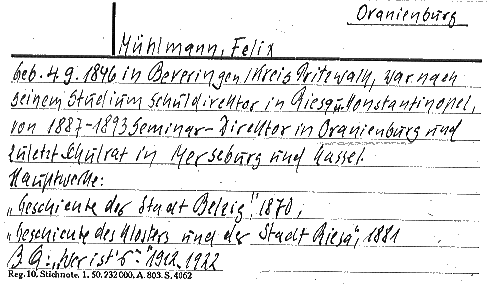 Oranienburg
Mühlmann, Felix
geb. 4.9.1846 in Beveringen/Kreis Pritzwalk, war nach
seinem Studium Schuldirektor in Riesa u. Konstantinopel,
von 1887-1893 Seminar-Direktor in Oranienburg und
zuletzt Schulrat in Merseburg und Kassel.
Hauptwerke:
„Geschichte der Stadt Belzig", 1870,
„Geschichte des Klosters und der Stadt Riesa", 1881
BQ: „Wer ist's" 1912, 1922
Reg. 10. Stichnote. 1. 50. 232000. A. 803. S. 4062